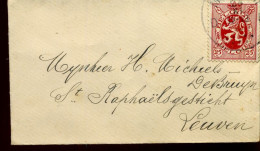 Mynheer H. Michiels
De Bruyn
St Raphaëlsgesticht
Leuven